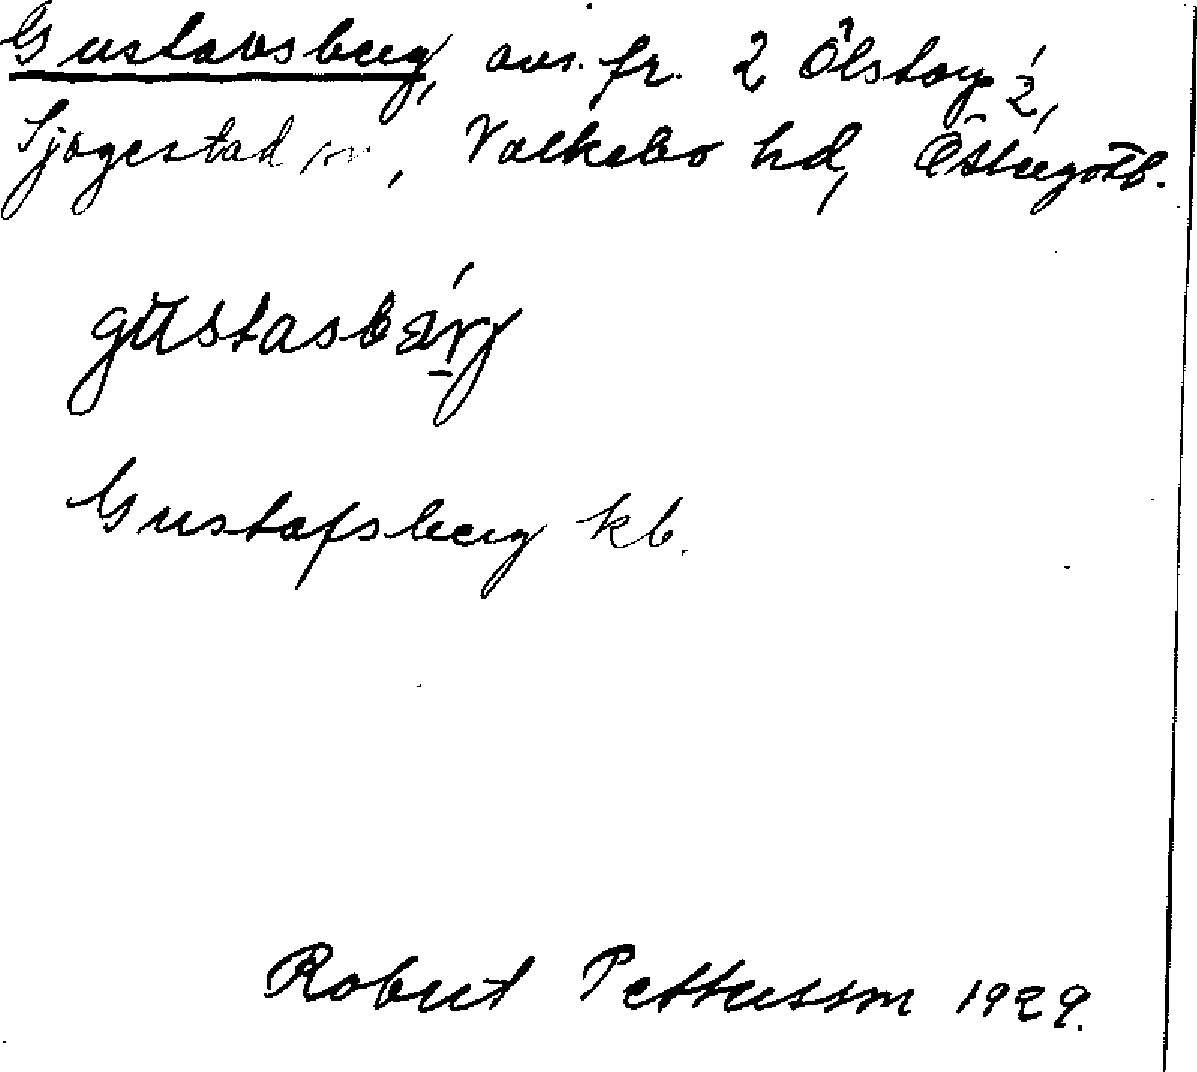 Gustavsberg, avs. fr. 2 Ölstorp 2,
Sjögestad sn, Valkebo hd, Östergötl.
gustasbärg
Gustafsberg kb.
Robert Pettersson 1929.